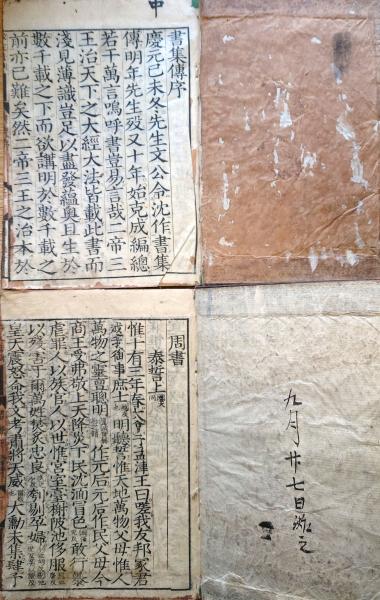 中
書集傳序
慶元己未冬先生文公令沈作書集
傳明年先生歿又十年始克成編總
若干萬言嗚呼書豈易言哉二帝三
王治天下之大經大法皆載此書而
淺見薄識豈足以盡發蘊奧且生於
數千載之下而欲講明於數千載之
前亦已難矣然二帝三王之治本於
周書
泰誓上
惟十有三年春大會于孟津王曰嗟我友邦冢君
越我御事庶士明聽誓惟天地萬物父母惟人
萬物之靈亶聰明作元后元后作民父母今
商王受弗敬上天降災下民沈湎冒色敢行暴
虐罪人以族官人以世惟宮室臺榭陂池侈服
以殘害于爾萬姓焚炙忠良刳剔孕婦
皇天震怒命我文考肅將天威大勳未集肆予
九月廿七日